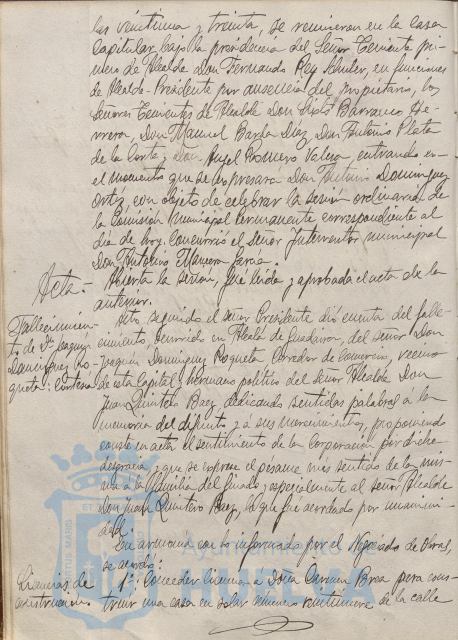 las veintiuna y treinta, se reunieron en la casa
Capitular bajo la presidencia del Señor Teniente pri-
mero de Alcalde Don Fernando Rey Schuler, en funciones
de Alcalde-Presidente por ausencia del propietario, los
Señores Tenientes de Alcalde Don Sixto Barranco He-
rrera, Don Manuel Barba Díaz, Don Antonio Plata
de la Corte y Don Angel Romero Valera, entrando en
el momento que se expresará Don Antonio Domínguez
Ortiz, con objeto de celebrar la sesión ordinaria de
la Comisión Municipal Permanente correspondiente al
día de hoy. Concurrió el Señor Interventor municipal
Don Antonio
Acta:- Abierta la sesión, fué leida y aprobada el acta de la
anterior.
Fallecimien-
to de Dn. Joaquín
Domínguez Ro-
queta:
Acto seguido el señor Presidente dió cuenta del falle-
cimiento, ocurrido en Alcalá de Guadaira, del señor Don
Joaquín Domínguez Roqueta Corredor de Comercio, vecino
de esta Capital y hermano político del Señor Alcalde Don
Juan Quintero Baez, dedicando sentidas palabras a la
memoria del difunto y a sus merecimientos, proponiendo
conste en acta el sentimiento de la Corporación por dicha
desgracia y que se exprese el pésame más sentido de la mis-
ma a la familia del finado y especialmente al señor Alcalde
Don Juan Quintero Baez, lo que fué acordado por unanimi-
dad.
En armonía con lo informado por el Negociado de Obras,
se acordó:
Licencias de
construcciones
1º: Conceder licencia a Doña Carmen Brea para cons-
truir una casa en solar número veintinueve de la calle
Ayuntamiento de
HUELVA